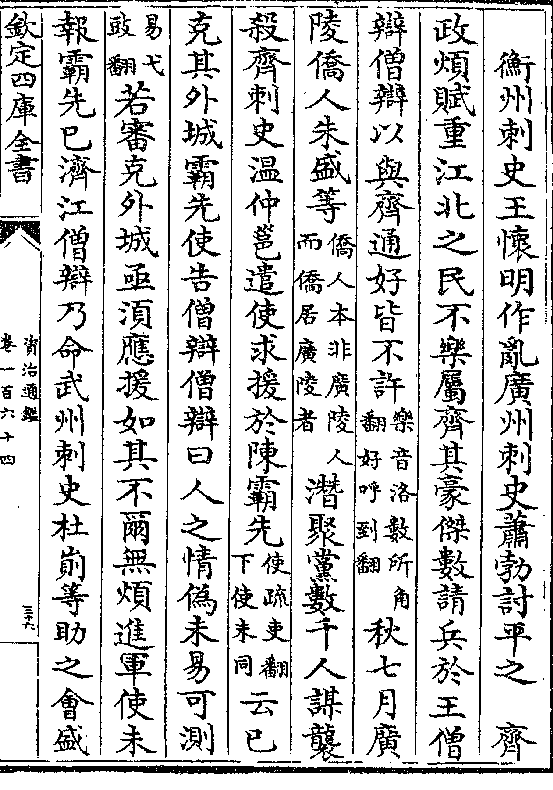 衡州刺史王懷明作亂廣州刺史蕭勃討平之　齊
政煩賦重江北之民不樂屬齊其豪傑數請兵於王僧
辯僧辯以與齊通好皆不許樂音洛數所角翻好呼到翻秋七月廣
陵僑人朱盛等僑人本非廣陵人而僑居廣陵者潛聚黨數千人謀襲
殺齊刺史温仲邕遣使求援於陳霸先使疏吏翻下使未同云已
克其外城霸先使告僧辯僧辯曰人之情偽未易可測
易弋豉翻若審克外城亟須應援如其不爾無煩進軍使未
報霸先已濟江僧辯乃命武州刺史杜崱等助之會盛
欽定四庫全書
資治通鑑
卷一百六十四
三十六